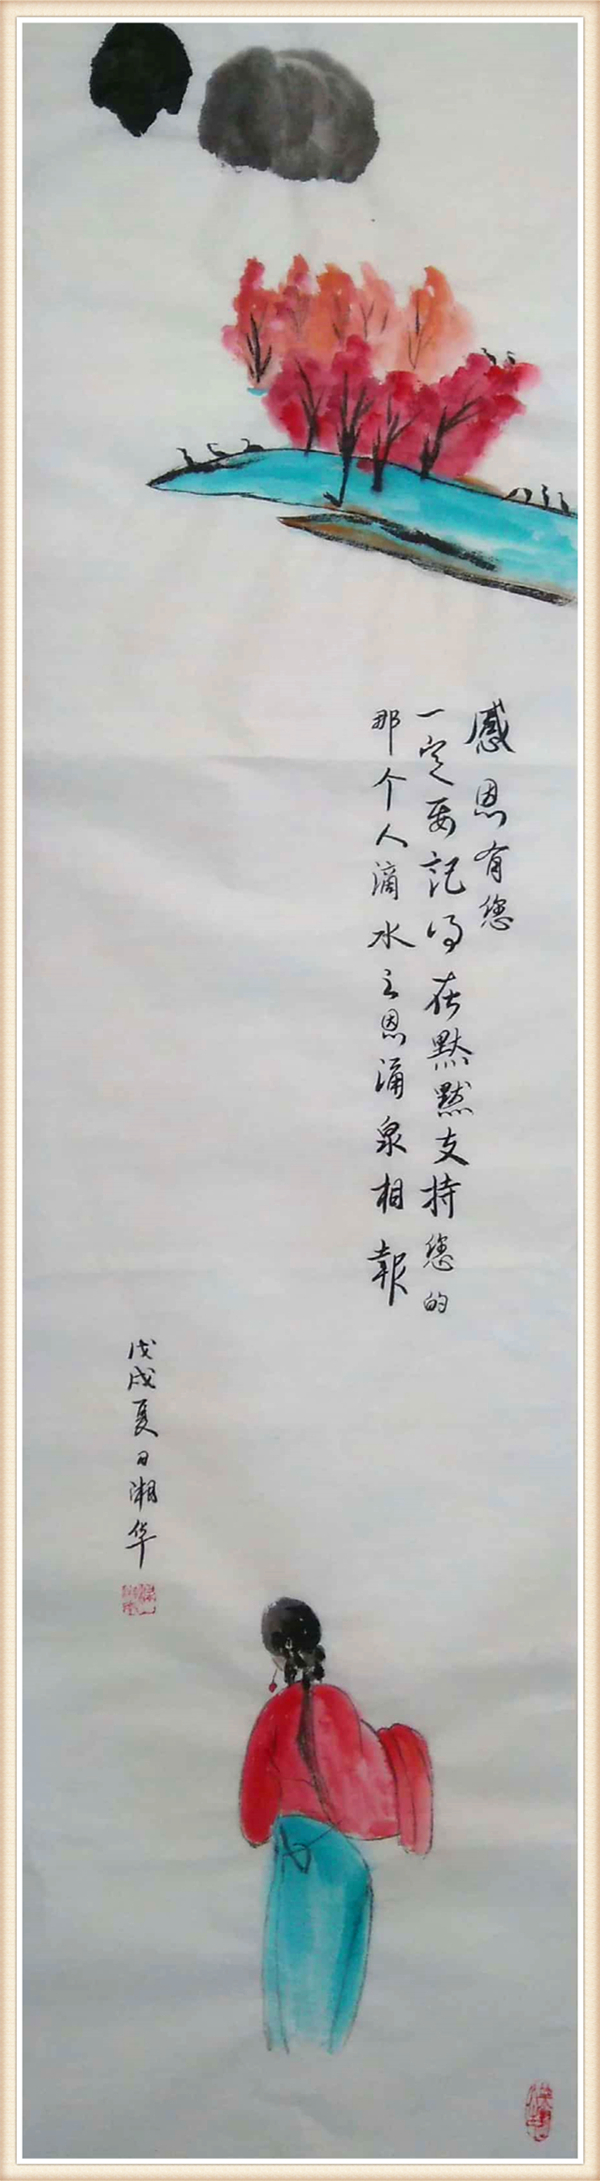 感恩有您
一定要記得在默默支持您的
那个人滴水之恩涌泉相報
戊戌夏日湘华